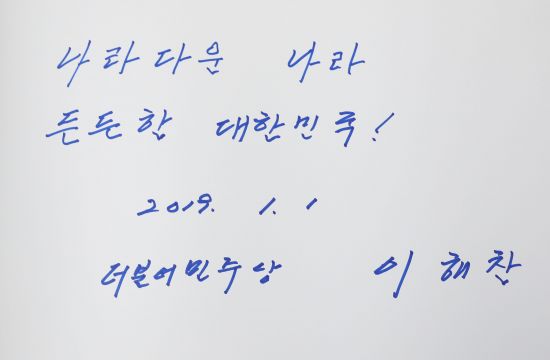 나라다운 나라
든든한 대한민국!
2019. 1. 1
더불어민주당 이해찬